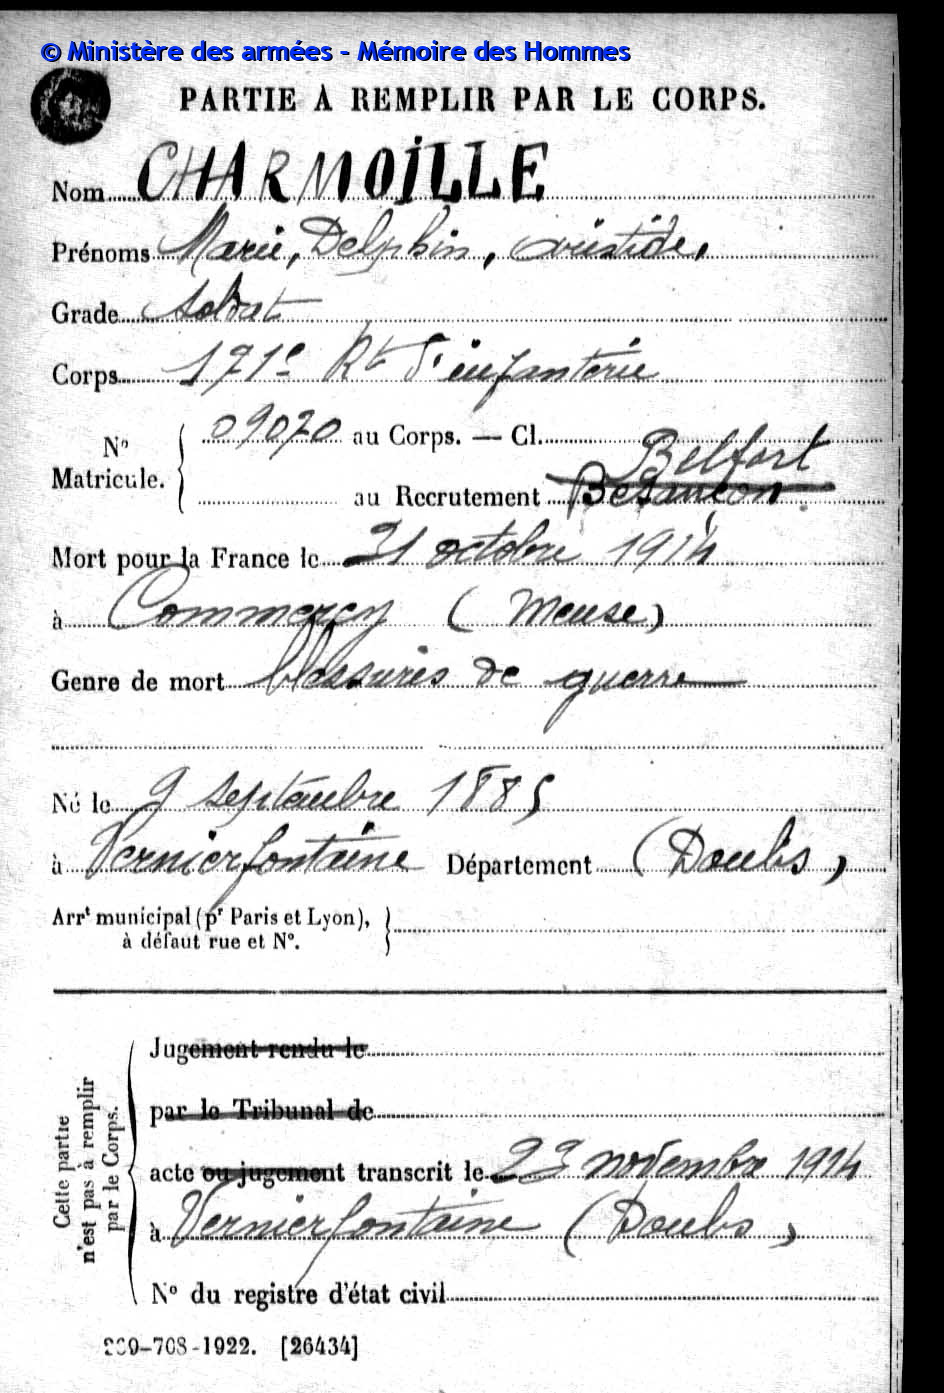 © Ministère des armées - Mémoire des Hommes
PARTIE A REMPLIR PAR LE CORPS.
Nom CHARMOILLE
Prénoms Marie, Delphin, aristide,
Grade Soldat
Corps 171e Rt d'infanterie
09070 au Corps. — Cl.
No Matricule.
Belfort
au Recrutement Besançon
Mort pour la France le 31 octobre 1914
à Commercy (Meuse)
Genre de mort blessures de guerre
Né le 9 septembre 1885
à Vernierfontaine Département (Doubs)
Arrt municipal (pr Paris et Lyon),
à défaut rue et No.
Cette partie
n'est pas à remplir
par le Corps.
Jugement rendu le
par le Tribunal de
acte ou jugement transcrit le 23 novembre 1914
à Vernierfontaine (Doubs)
No du registre d'état civil
-708-1922. [26434]